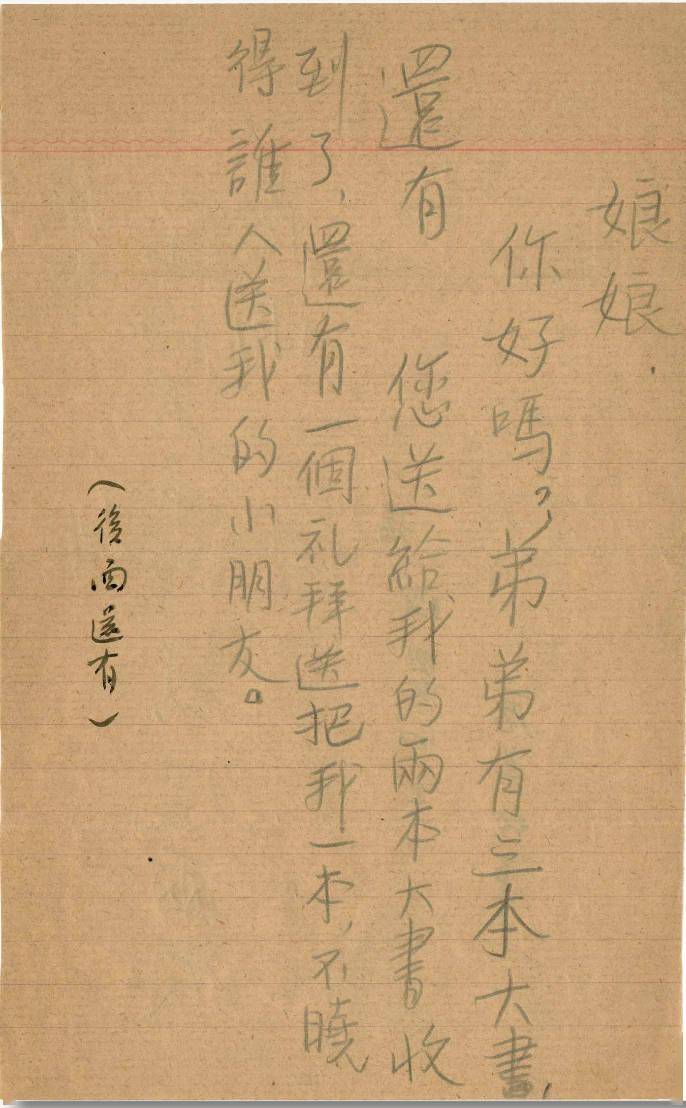 娘娘.
你好嗎？弟弟有三本大書,
還有 您送給我的兩本大書收
到了,還有一個礼拜送把我一本,不曉
得誰人送我的小朋友。
（後面還有）